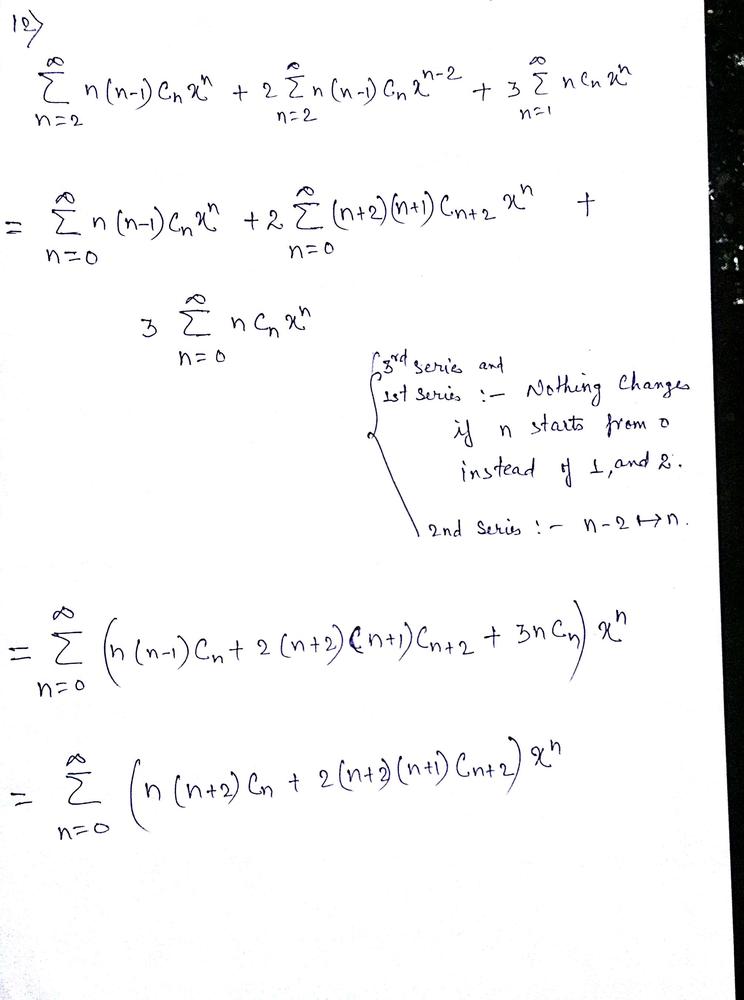 12)
∑_{n=2}^{∞} n(n-1) C_n x^n + 2 ∑_{n=2}^{∞} n(n-1) C_n x^{n-2} + 3 ∑_{n=1}^{∞} n C_n x^n
= ∑_{n=0}^{∞} n(n-1) C_n x^n + 2 ∑_{n=0}^{∞} (n+2)(n+1) C_{n+2} x^n +
3 ∑_{n=0}^{∞} n C_n x^n
3rd series and
1st series :- Nothing changes
if n starts from 0
instead of 1, and 2.
2nd series :- n-2 ↦ n.
= ∑_{n=0}^{∞} (n(n-1) C_n + 2(n+2)(n+1) C_{n+2} + 3n C_n) x^n
= ∑_{n=0}^{∞} (n(n+2) C_n + 2(n+2)(n+1) C_{n+2}) x^n